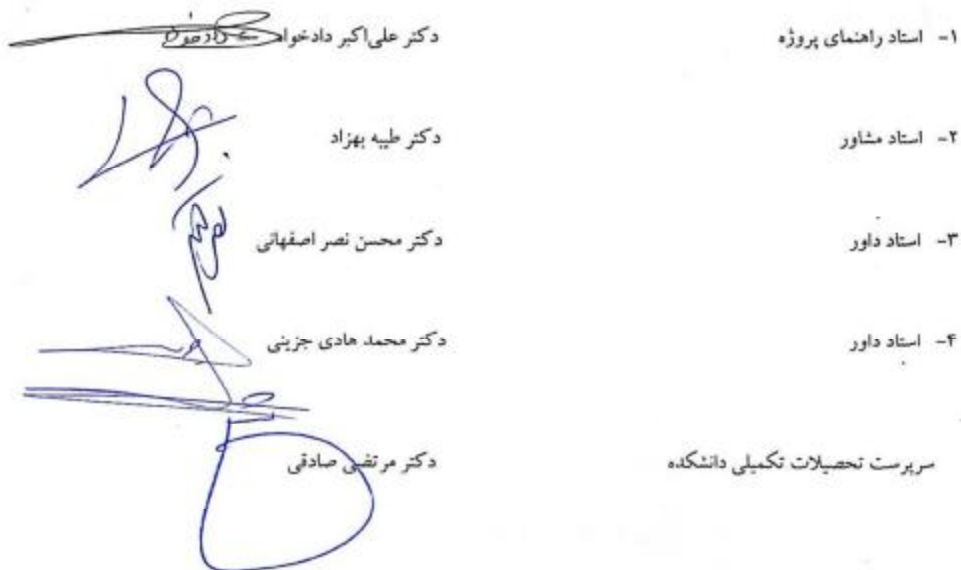 ۱- استاد راهنمای پروژه دکتر علی‌اکبر دادخواه
۲- استاد مشاور دکتر طیبه بهزاد
۳- استاد داور دکتر محسن نصر اصفهانی
۴- استاد داور دکتر محمد هادی جزینی
سرپرست تحصیلات تکمیلی دانشکده دکتر مرتضی صادقی